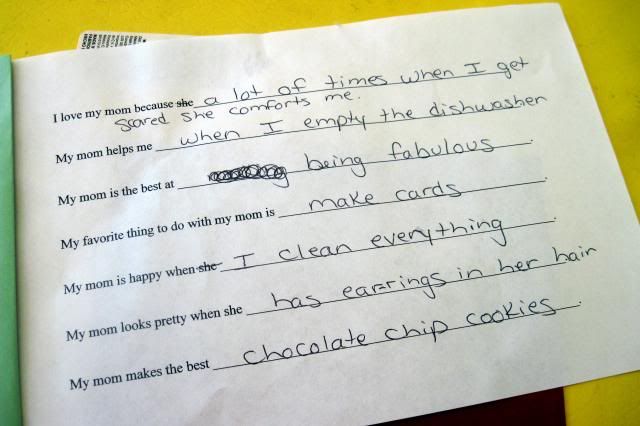 I love my mom because she a lot of times when I get
scared she comforts me.
My mom helps me when I empty the dishwasher
My mom is the best at being fabulous.
My favorite thing to do with my mom is make cards.
My mom is happy when she I clean everything.
My mom looks pretty when she has earrings in her hair
My mom makes the best chocolate chip cookies.